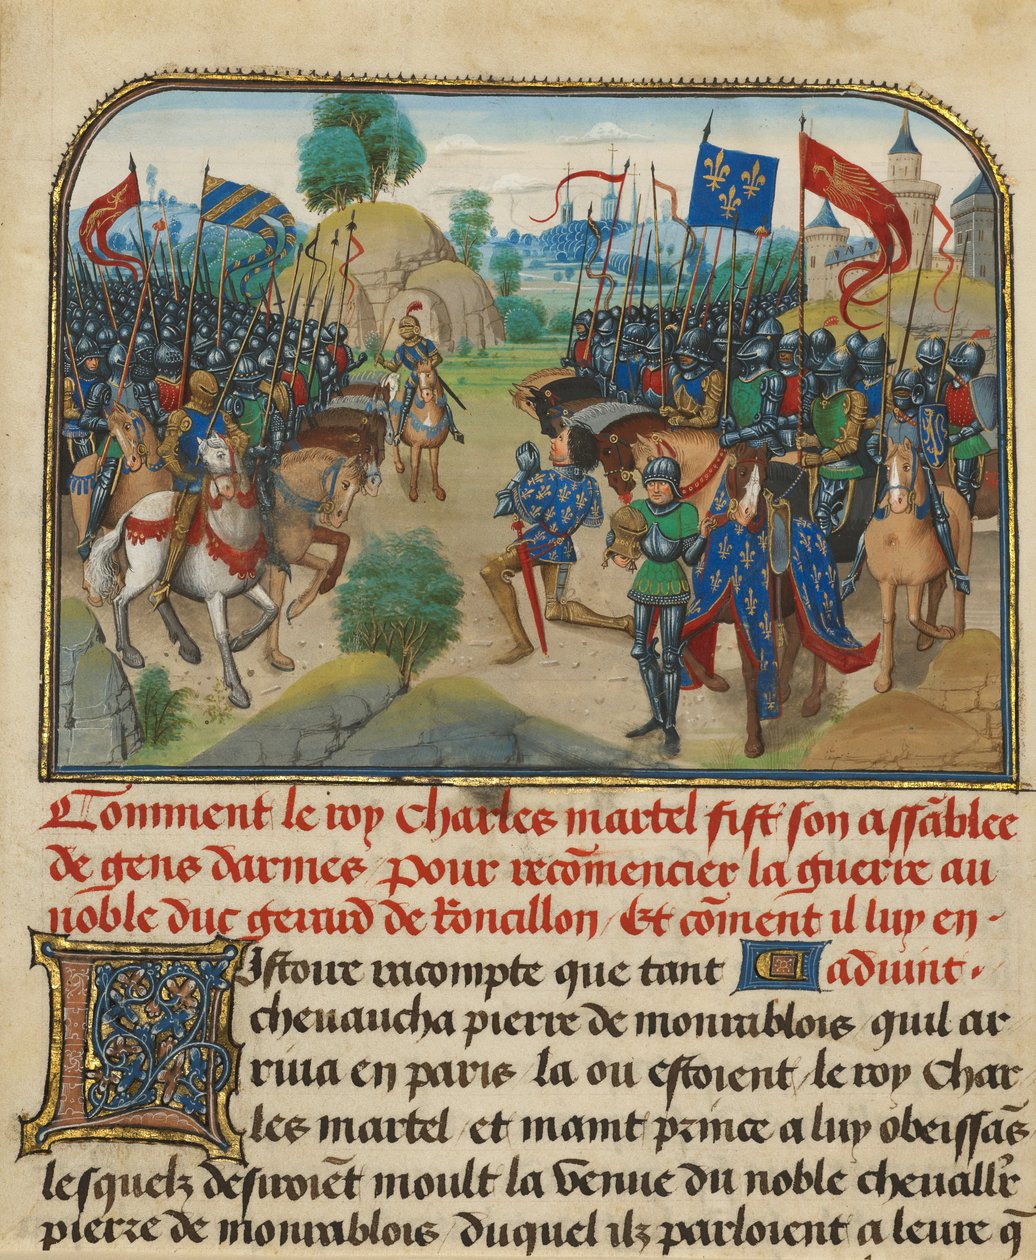 Comment le roy Charles martel fist son assãblee
de gens darmes / pour recõmencier la guerre au
noble duc gerard de Roncillon / Et cõment il luy en‑
Istoire racompte que tant aduint .
cheuaucha pierre de monrablois quil ar
riua en paris la ou estoient / le roy Char
les martel / et maint prince a luy obeissãs
lesquelz desiroiẽt moult la venue du noble cheuallr̃
pierre de monrablois / duquel ilz parloient a leure q̃